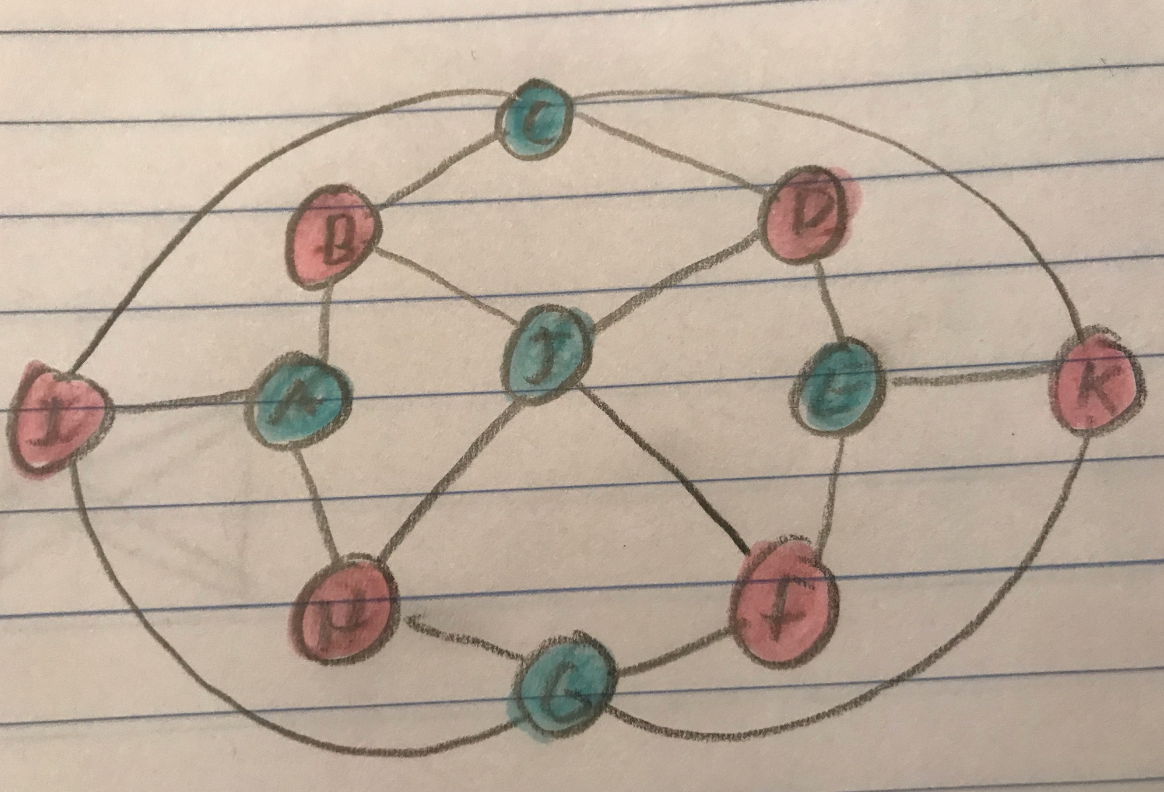 C
B
D
J
I
A
E
K
H
F
G